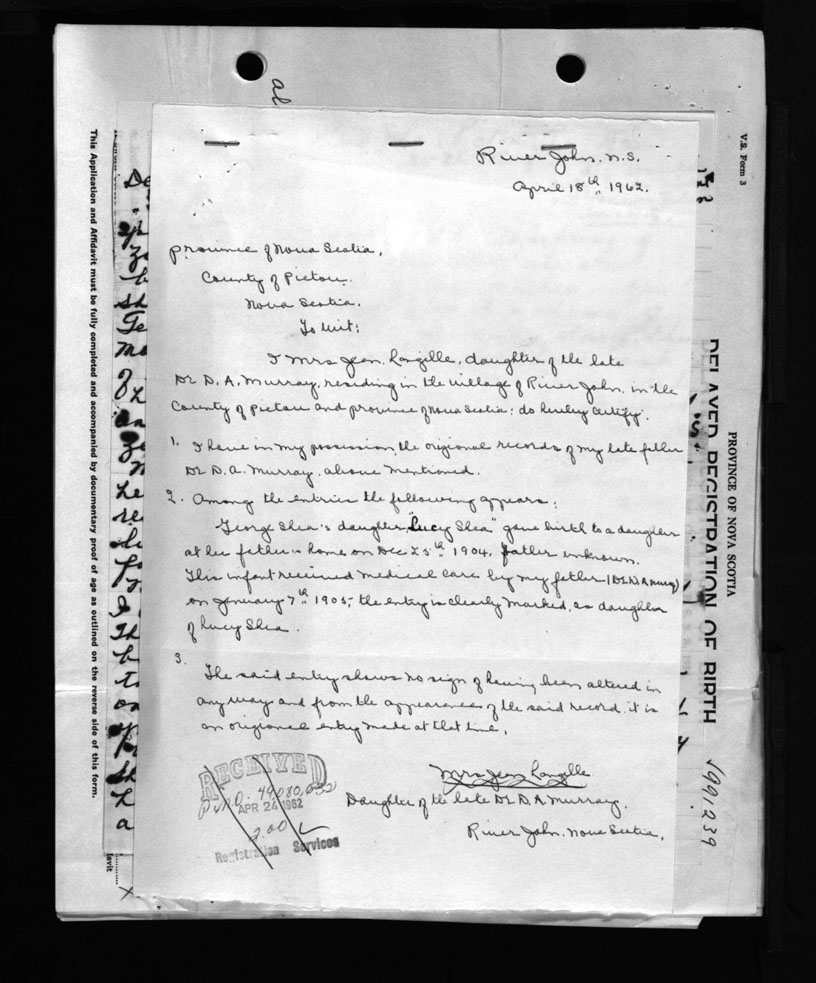 al
River John. N.S.
April 18th, 1962.
province of Nova Scotia,
County of Pictou.
Nova Scotia.
To Wit:
I Mrs Jean. Langille, daughter of the late
Dr D. A. Murray, residing in the village of River John. in the
County of Pictou and province of Nova Scotia: do hereby certify.
1. I have in my possession, the origional records of my late father
Dr D. A. Murray. above mentioned.
2. Among the entries the following appears:
George Shea's daughter, "Lucy Shea" gave birth to a daughter
at her father's home on Dec 25th 1904. father unknown.
This infant received medical care by my father (Dr D. A Murray)
on January 7th 1905, the entry is clearly marked, as daughter
of Lucy Shea.
3.
The said entry shows no sign of having been altered in
any way and from the appearance of the said record. it is
an origional entry made at that time.
Mrs Jean Langille
Daughter of the late Dr D. A Murray.
River John. Nova Scotia.
RECEIVED
APR 24 1962
2.00
Registration Services
This Application and Affidavit must be fully completed and accompanied by documentary proof of age as outlined on the reverse side of this form.
V.S. Form 3
PROVINCE OF NOVA SCOTIA
DELAYED REGISTRATION OF BIRTH
991239